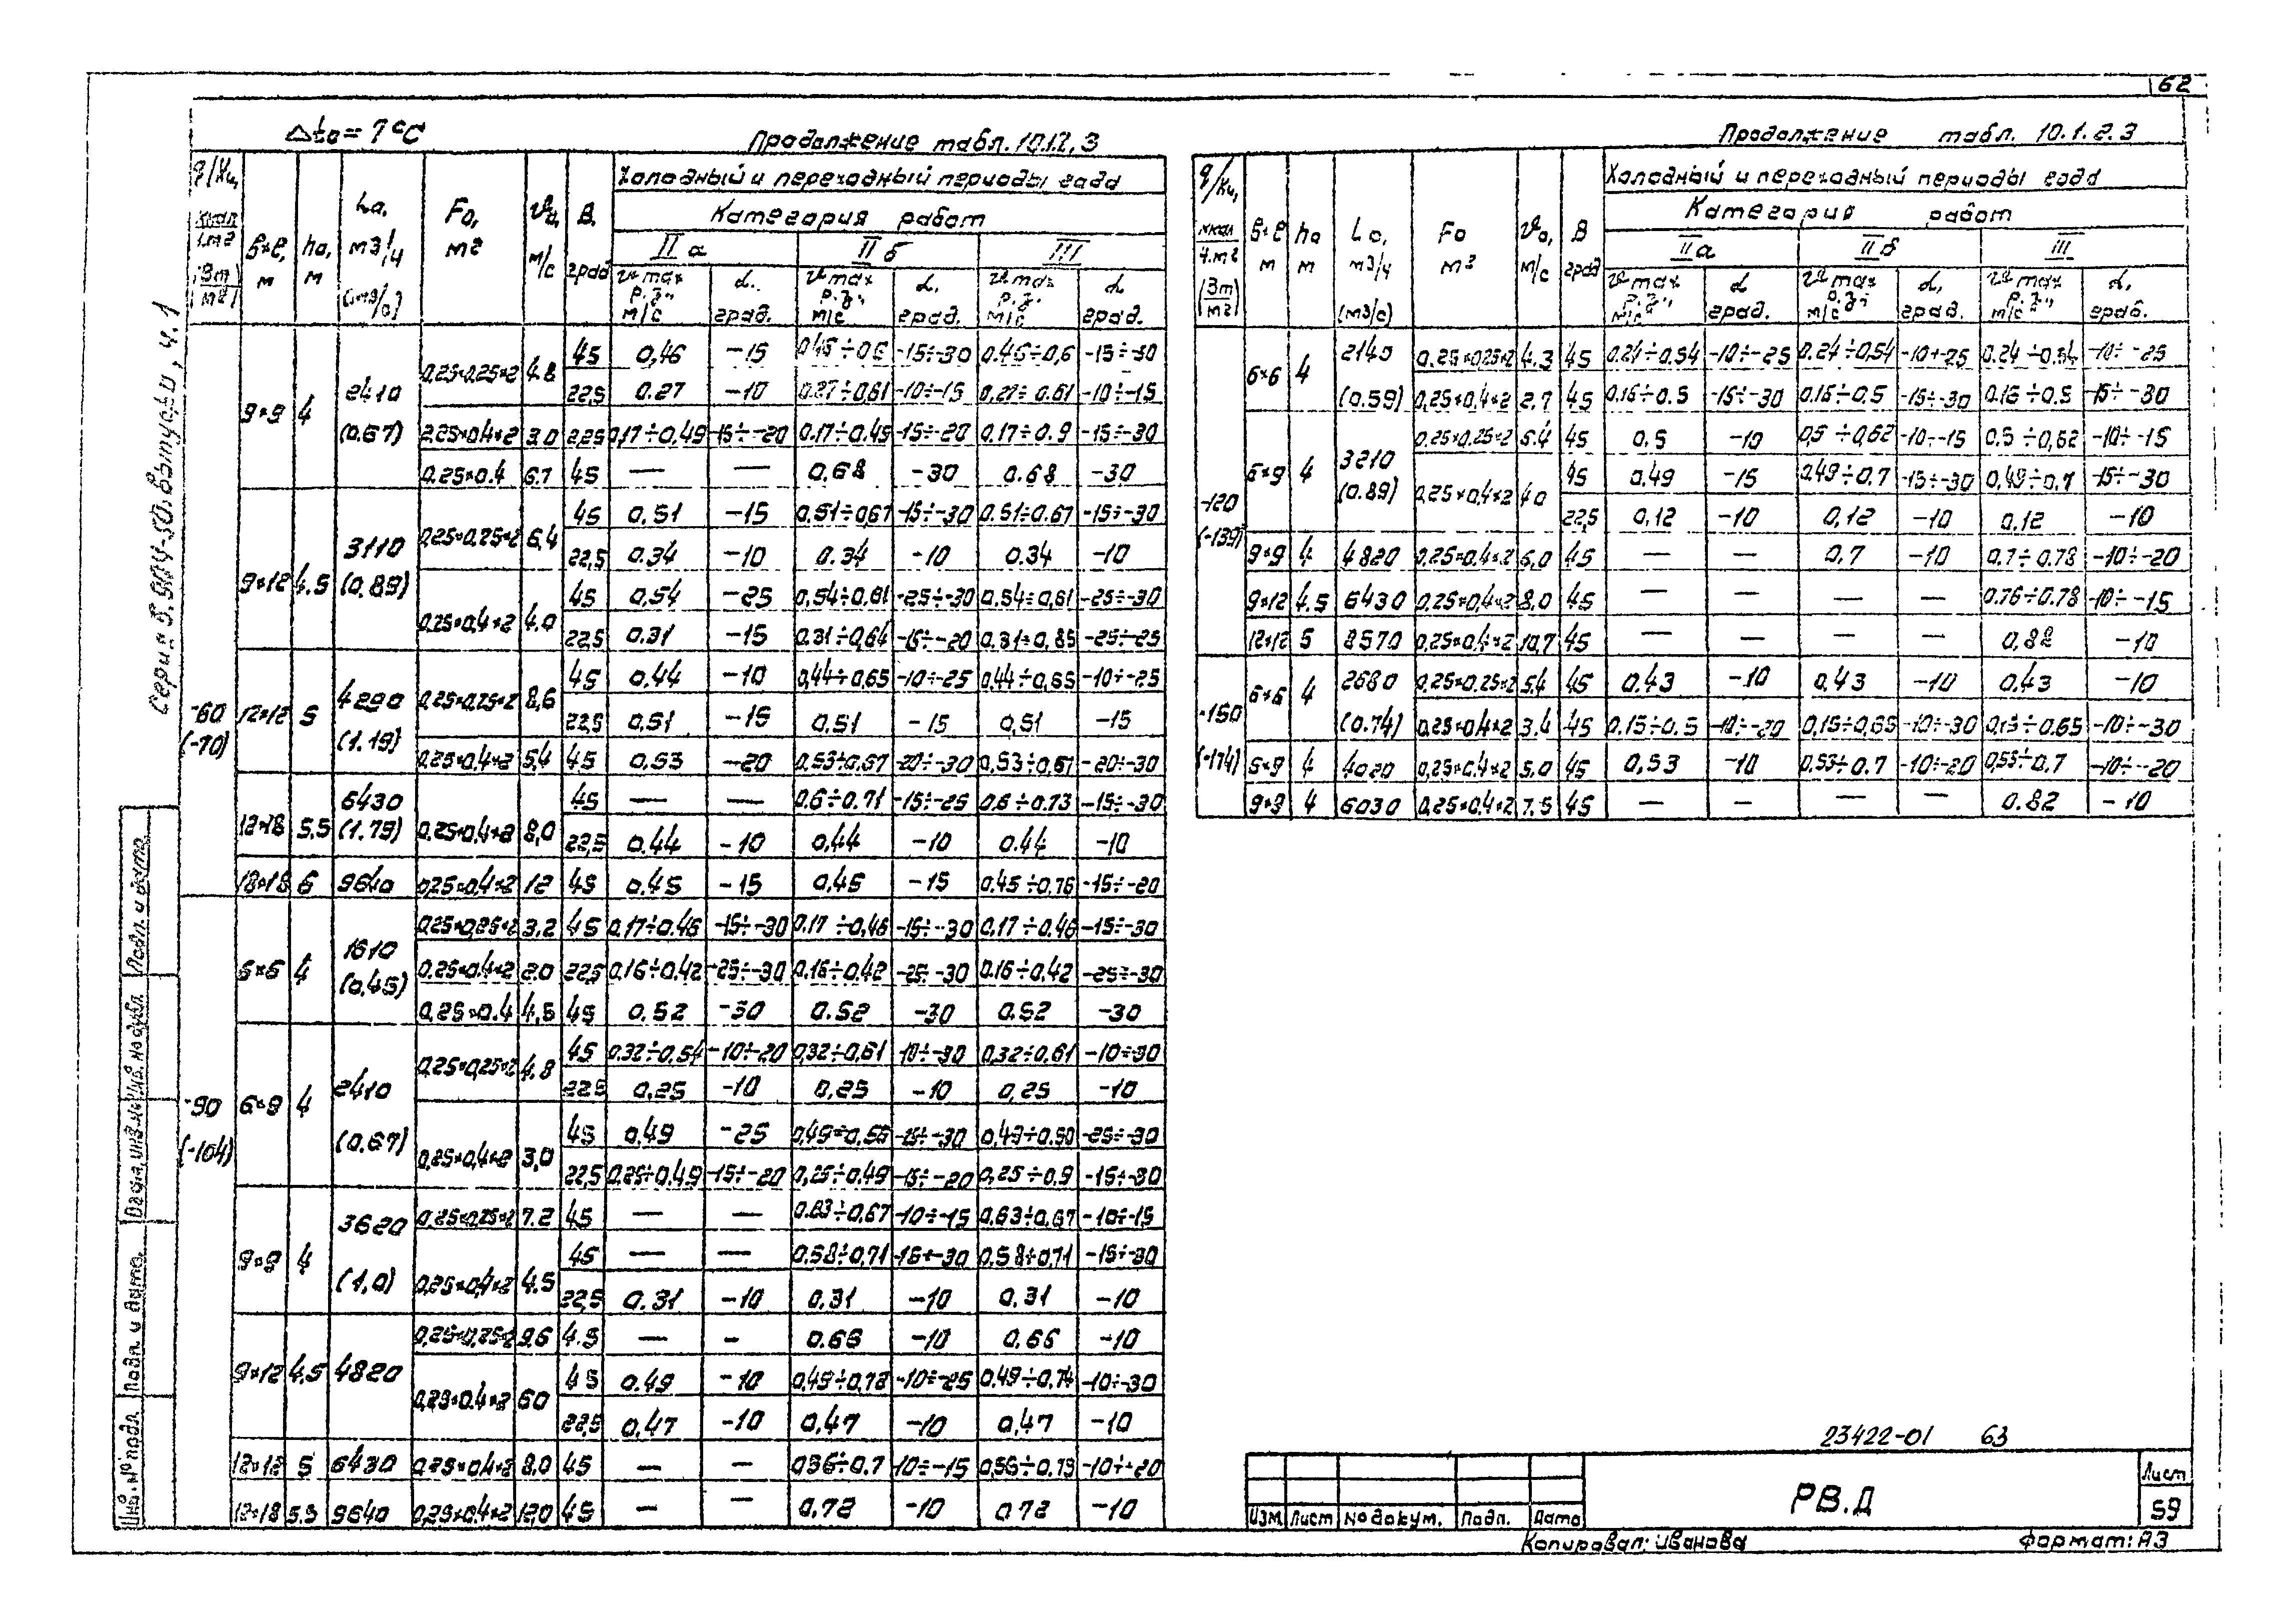 62
Δto = 7°C
Продолжение табл. 10.1.2.3
q/Кц, ккал/ч.м² (Вт/м²) | в×ℓ, м | ho, м | Lo, м3/ч (м3/с) | Fo, м² | υo, м/с | β, град | Холодный и переходный периоды года
Категория работ
IIа | IIб | III
υ max р.з., м/с | α, град. | υ max р.з., м/с | α, град. | υ max р.з., м/с | α, град.
-60 (-70) | 9×9 | 4 | 2410 (0.67) | 0.25×0.25×2 | 4.8 | 45 | 0,46 | -15 | 0.46÷0.6 | -15÷-30 | 0.46÷0,6 | -15÷-30
22,5 | 0.27 | -10 | 0.27÷0,61 | -10÷-15 | 0,27÷0.61 | -10÷-15
0.25×0.4×2 | 3.0 | 22,5 | 0,17÷0,49 | -15÷-20 | 0.17÷0.49 | -15÷-20 | 0.17÷0.9 | -15÷-30
0.25×0.4 | 6.7 | 45 | — | — | 0.68 | -30 | 0.68 | -30
9×12 | 4.5 | 3110 (0.89) | 0.25×0.25×2 | 6,4 | 45 | 0.51 | -15 | 0.51÷0,67 | -15÷-30 | 0.51÷0.67 | -15÷-30
22,5 | 0.34 | -10 | 0.34 | -10 | 0.34 | -10
0.25×0.4×2 | 4.0 | 45 | 0,54 | -25 | 0,54÷0.61 | -25÷-30 | 0,54÷0,61 | -25÷-30
22,5 | 0.31 | -15 | 0.31÷0,64 | -15÷-20 | 0,31÷0,85 | -25÷-25
12×12 | 5 | 4290 (1.19) | 0.25×0.25×2 | 8,6 | 45 | 0.44 | -10 | 0,44÷0,65 | -10÷-25 | 0,44÷0,65 | -10÷-25
22,5 | 0,51 | -15 | 0,51 | -15 | 0,51 | -15
0.25×0.4×2 | 5,4 | 45 | 0,53 | -20 | 0,53÷0,67 | -20÷-30 | 0,53÷0,67 | -20÷-30
12×18 | 5.5 | 6430 (1.79) | 0.25×0.4×2 | 8,0 | 45 | — | — | 0.6÷0.71 | -15÷-25 | 0,6÷0.73 | -15÷-30
22,5 | 0.44 | -10 | 0,44 | -10 | 0.44 | -10
18×18 | 6 | 9640 | 0,25×0.4×2 | 12 | 45 | 0.45 | -15 | 0,45 | -15 | 0.45÷0,76 | -15÷-20
-90 (-104) | 6×6 | 4 | 1610 (0,45) | 0.25×0,25×2 | 3.2 | 45 | 0,17÷0.46 | -15÷-30 | 0.17÷0,46 | -15÷-30 | 0,17÷0.46 | -15÷-30
0.25×0.4×2 | 2.0 | 22,5 | 0,16÷0,42 | -25÷-30 | 0.16÷0,42 | -25÷-30 | 0.16÷0,42 | -25÷-30
0,25×0.4 | 4,5 | 45 | 0.52 | -30 | 0.52 | -30 | 0.52 | -30
6×9 | 4 | 2410 (0.67) | 0,25×0,25×2 | 4.8 | 45 | 0.32÷0,54 | -10÷-20 | 0,32÷0,61 | -10÷-30 | 0,32÷0.61 | -10÷-30
22,5 | 0,25 | -10 | 0,25 | -10 | 0,25 | -10
0,25×0,4×2 | 3,0 | 45 | 0,49 | -25 | 0,49÷0,56 | -15÷-30 | 0,49÷0,90 | -25÷-30
22,5 | 0,25÷0,49 | -15÷-20 | 0,25÷0,49 | -15÷-20 | 0,25÷0,9 | -15÷-30
9×9 | 4 | 3620 (1,0) | 0,25×0,25×2 | 7.2 | 45 | — | — | 0.63÷0,67 | -10÷-15 | 0,63÷0,67 | -10÷-15
0,25×0,4×2 | 4.5 | 45 | — | — | 0,58÷0,71 | -15÷-30 | 0,58÷0,71 | -15÷-30
22,5 | 0.31 | -10 | 0,31 | -10 | 0,31 | -10
9×12 | 4,5 | 4820 | 0,25×0,25×2 | 9.6 | 4.5 | — | - | 0.66 | -10 | 0,66 | -10
0,25×0.4×2 | 60 | 45 | 0.49 | -10 | 0,49÷0,72 | -10÷-25 | 0,49÷0,74 | -10÷-30
22,5 | 0,47 | -10 | 0,47 | -10 | 0,47 | -10
12×12 | 5 | 6430 | 0,25×0,4×2 | 8,0 | 45 | — | — | 0,56÷0.7 | -10÷-15 | 0,56÷0.73 | -10÷-20
12×18 | 5.5 | 9640 | 0,25×0.4×2 | 12,0 | 45 | — | — | 0,72 | -10 | 0 72 | -10
Продолжение табл. 10.1.2.3
q/Кц, ккал/ч.м² (Вт/м²) | в×ℓ м | ho м | Lo, м3/ч (м3/с) | Fo м² | υo, м/с | β град | Холодный и переходный периоды года
Категория работ
IIа | IIб | III
υ max р.з., м/с | α град. | υ max р.з., м/с | α, град. | υ max р.з., м/с | α, град.
-120 (-139) | 6×6 | 4 | 2140 (0.59) | 0.25×0.25×2 | 4.3 | 45 | 0.24÷0.54 | -10÷-25 | 0,24÷0,54 | -10÷-25 | 0.24÷0.54 | -10÷-25
0,25×0,4×2 | 2.7 | 45 | 0.16÷0.5 | -15÷-30 | 0.16÷0,5 | -15÷-30 | 0.16÷0.5 | -15÷-30
6×9 | 4 | 3210 (0.89) | 0.25×0,25×2 | 5.4 | 45 | 0.5 | -10 | 0,5÷0,62 | -10÷-15 | 0.5÷0,62 | -10÷-15
0,25×0,4×2 | 4 0 | 45 | 0,49 | -15 | 0,49÷0,7 | -15÷-30 | 0,49÷0,7 | -15÷-30
22,5 | 0,12 | -10 | 0,12 | -10 | 0.12 | -10
9×9 | 4 | 4820 | 0,25×0,4×2 | 6,0 | 45 | — | — | 0.7 | -10 | 0.7÷0.78 | -10÷-20
9×12 | 4.5 | 6430 | 0,25×0,4×2 | 8,0 | 45 | — | — | — | — | 0.76÷0.78 | -10÷-15
12×12 | 5 | 8570 | 0,25×0,4×2 | 10,7 | 45 | — | — | — | — | 0,82 | -10
-150 (-174) | 6×6 | 4 | 2680 (0.74) | 0,25×0,25×2 | 5,4 | 45 | 0.43 | -10 | 0,43 | -10 | 0.43 | -10
0,25×0,4×2 | 3.4 | 45 | 0.15÷0.5 | -10÷-20 | 0,15÷0,65 | -10÷-30 | 0,15÷0.65 | -10÷-30
6×9 | 4 | 4020 | 0,25×0,4×2 | 5.0 | 45 | 0,53 | -10 | 0,53÷0.7 | -10÷-20 | 0,53÷0.7 | -10÷-20
9×9 | 4 | 6030 | 0,25×0,4×2 | 7.5 | 45 | — | — | — | — | 0.82 | -10
Серия 5.904-50. Выпуск 0, ч. 1
Инв. № подл. | Подп. и дата. | Взам. инв. № | Инв. № дубл. | Подп. и дата
23422-01 63
Изм. Лист № докум. Подп. Дата
РВ.Д
Лист
59
Копировал: Иванова
Формат: А3